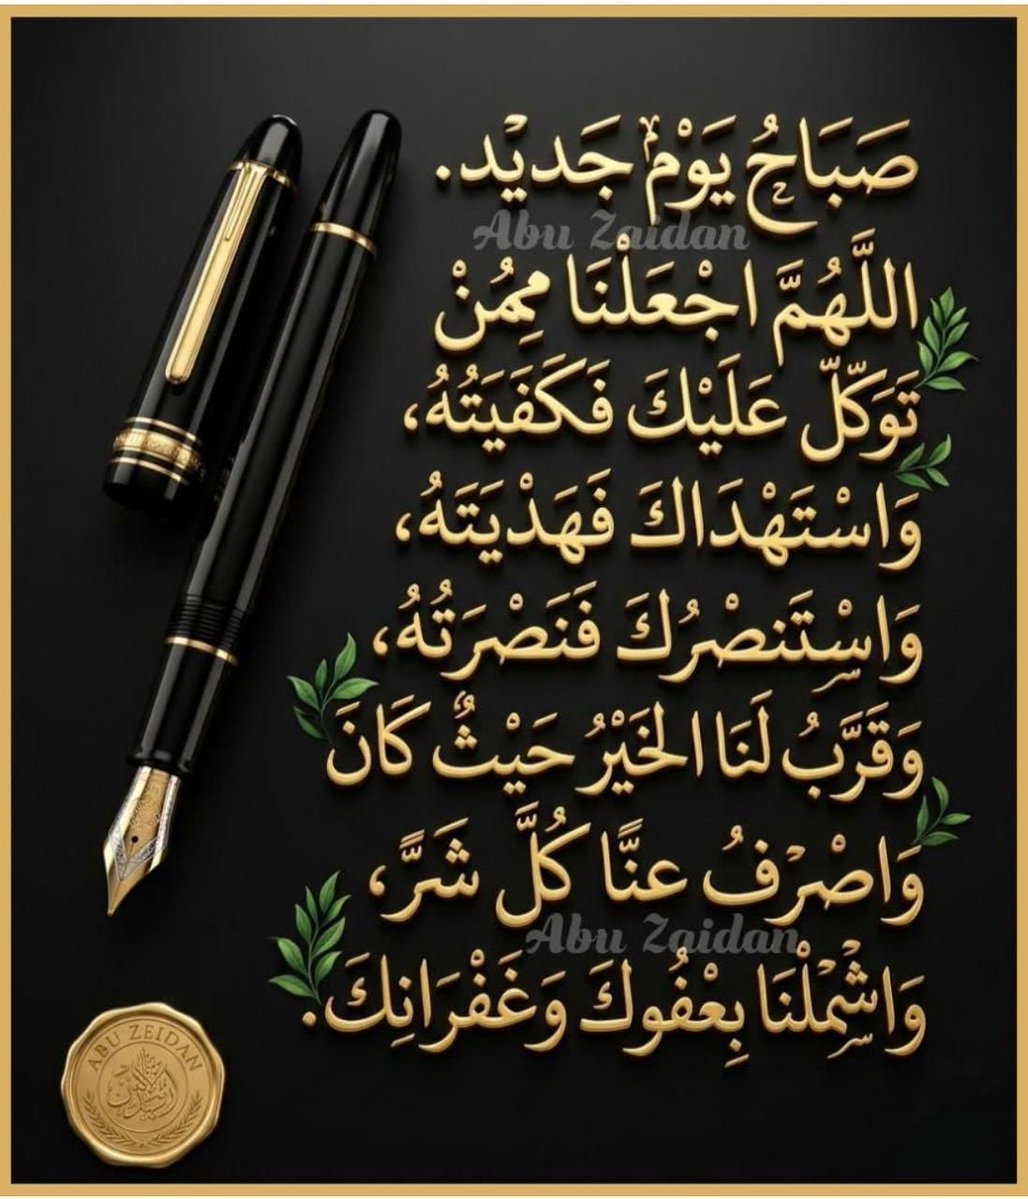 صَبَاحُ يَوْمٌ جَديْد.
Abu Zaidan
اللَّهُمَّ اجْعَلْنَا مِمُنْ
تَوَكّلّ عَلَيْكَ فَكَفَيَتُهُ،
وَاسْتَهْدَاكَ فَهَدْيَتَهُ،
وَاسْتَنصْرُكَ فَنَصْرَتُهُ،
وَقَرَّبُ لَنَا الخَيْرُ حَيْثٌ كَانَ
وَاصْرْفُ عنَّا كُلَّ شَرًّ،
Abu Zaidan
وَاشْمْلْنَا بِعْفُوكَ وَغَفْرَانِكَ.
ABU ZEIDAN
ABU ZEIDAN